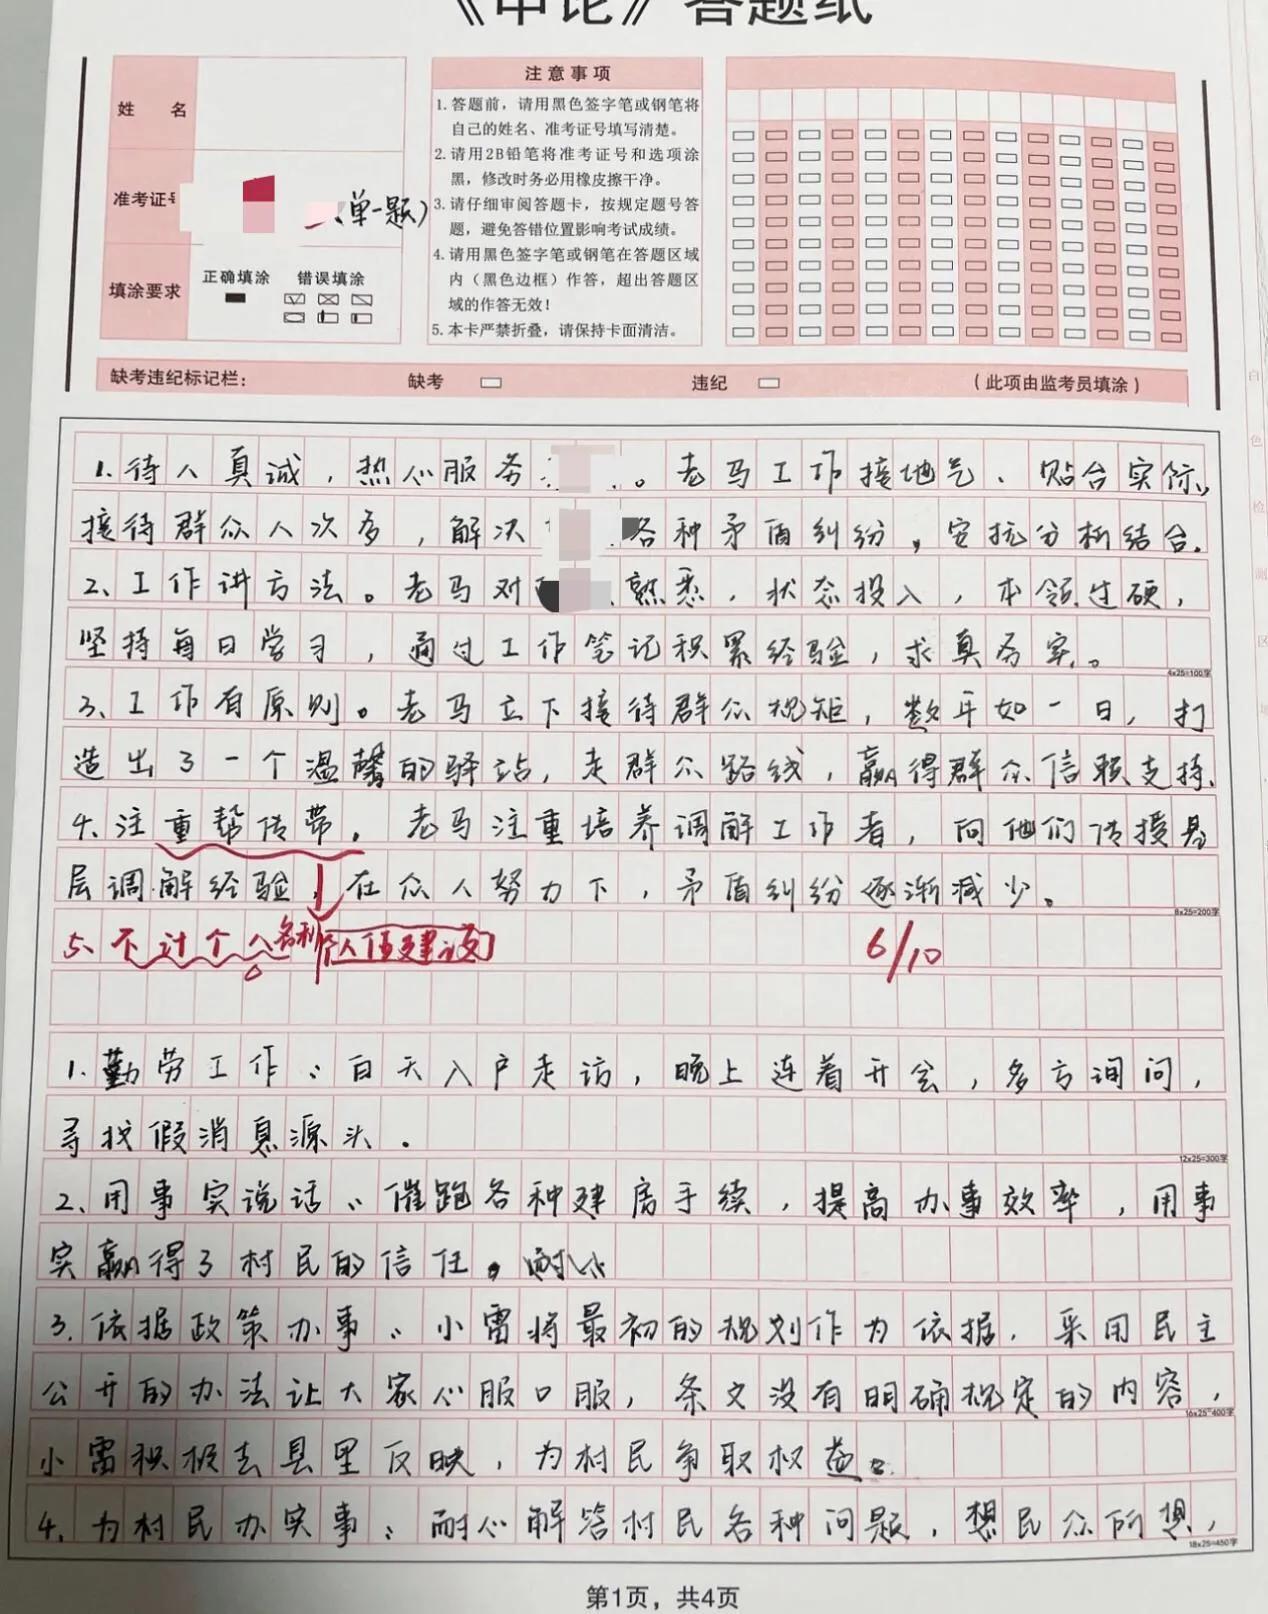 《申论》答题纸
姓 名
准考证号
(单一题)
填涂要求
正确填涂 错误填涂
注意事项
1.答题前，请用黑色签字笔或钢笔将
自己的姓名、准考证号填写清楚。
2.请用2B铅笔将准考证号和选项涂
黑，修改时务必用橡皮擦干净。
3.请仔细审阅答题卡，按规定题号答
题，避免答错位置影响考试成绩。
4.请用黑色签字笔或钢笔在答题区域
内（黑色边框）作答，超出答题区
域的作答无效！
5.本卡严禁折叠，请保持卡面清洁。
缺考违纪标记栏： 缺考 违纪 （此项由监考员填涂）
1.待人真诚，热心服务。老马工作接地气、贴合实际，
接待群众人次多，解决各种矛盾纠纷，分析结合.
2、工作讲方法。老马对熟悉，状态投入，本领过硬，
坚持每日学习，通过工作笔记积累经验，求真务实。
4x25=100字
3、工作有原则。老马立下接待群众规矩，数年如一日，打
造出了一个温馨的驿站，走群众路线，赢得群众信赖支持.
4、注重帮传带。老马注重培养调解工作者，向他们传授基
层调解经验，在众人努力下，矛盾纠纷逐渐减少。
8x25=200字
5、不计个人名利 6/10
1.勤劳工作：白天入户走访，晚上连着开会，多方询问，
寻找假消息源头.
12x25=300字
2、用事实说话：催跑各种建房手续，提高办事效率，用事
实赢得了村民的信任。耐心
3.依据政策办事：小雷将最初的规划作为依据.采用民主
公开的办法让大家心服口服，条文没有明确规定的内容，
16x25=400字
小雷积极去县里反映，为村民争取权益。
4.为村民办实事：耐心解答村民各种问题，想民众所想，
18x25=450字
第1页，共4页
白色检测区域